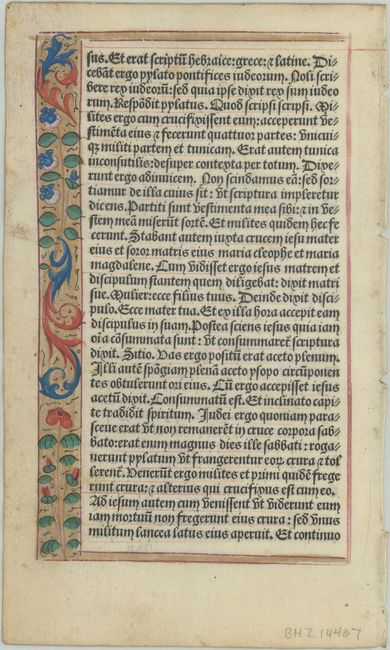 sus. Et erat scriptũ hebraice: grece: ⁊ latine. Di-
cebãt ergo pylato pontifices iudeorum. Noli scri-
bere rex iudeorũ: sed quia ipse dixit rex sum iudeo
rum. Respõdit pylatus. Quod scripsi scripsi. Mi-
lites ergo cum crucifixissent eum: acceperunt ve-
stimẽta eius ⁊ fecerunt quattuor partes: vnicui-
q̃ militi partem et tunicam. Erat autem tunica
inconsutilis: desuper contexta per totum. Dixe-
runt ergo adinuicem. Non scindamus eã: sed sor-
tiamur de illa cuius sit: vt scriptura impleretur
dicens. Partiti sunt vestimenta mea sibi: ⁊ in ve-
stem meã miserũt sortẽ. Et milites quidem hec fe
cerunt. Stabant autem iuxta crucem iesu mater
eius et soror matris eius maria cleophe et maria
magdalene. Cum vidisset ergo iesus matrem et
discipulum stantem quem diligebat: dixit matri
sue. Mulier: ecce filius tuus. Deinde dixit disci-
pulo. Ecce mater tua. Et ex illa hora accepit eam
discipulus in suam. Postea sciens iesus quia iam
oĩa cõsummata sunt: vt consummaretˉ scriptura
dixit. Sitio. Vas ergo positũ erat aceto plenum.
Illi autẽ spõgiam plenã aceto ysopo circũponen
tes obtulerunt ori eius. Cũ ergo accepisset iesus
acetũ dixit. Consummatũ est. Et inclinato capi-
te tradidit spiritum. Iudei ergo quoniam para-
sceue erat vt non remanerẽt in cruce corpora sab-
bato: erat enim magnus dies ille sabbati: roga-
uerunt pylatum vt frangerentur eorum crura ⁊ tol
lerentˉ. Venerũt ergo milites et primi quidẽ frege
runt crura: ⁊ alterius qui crucifixus est cum eo.
Ad iesum autem cum venissent vt viderunt eum
iam mortuũ non fregerunt eius crura: sed vnus
militum lancea latus eius aperuit. Et continuo
BHZ 14407